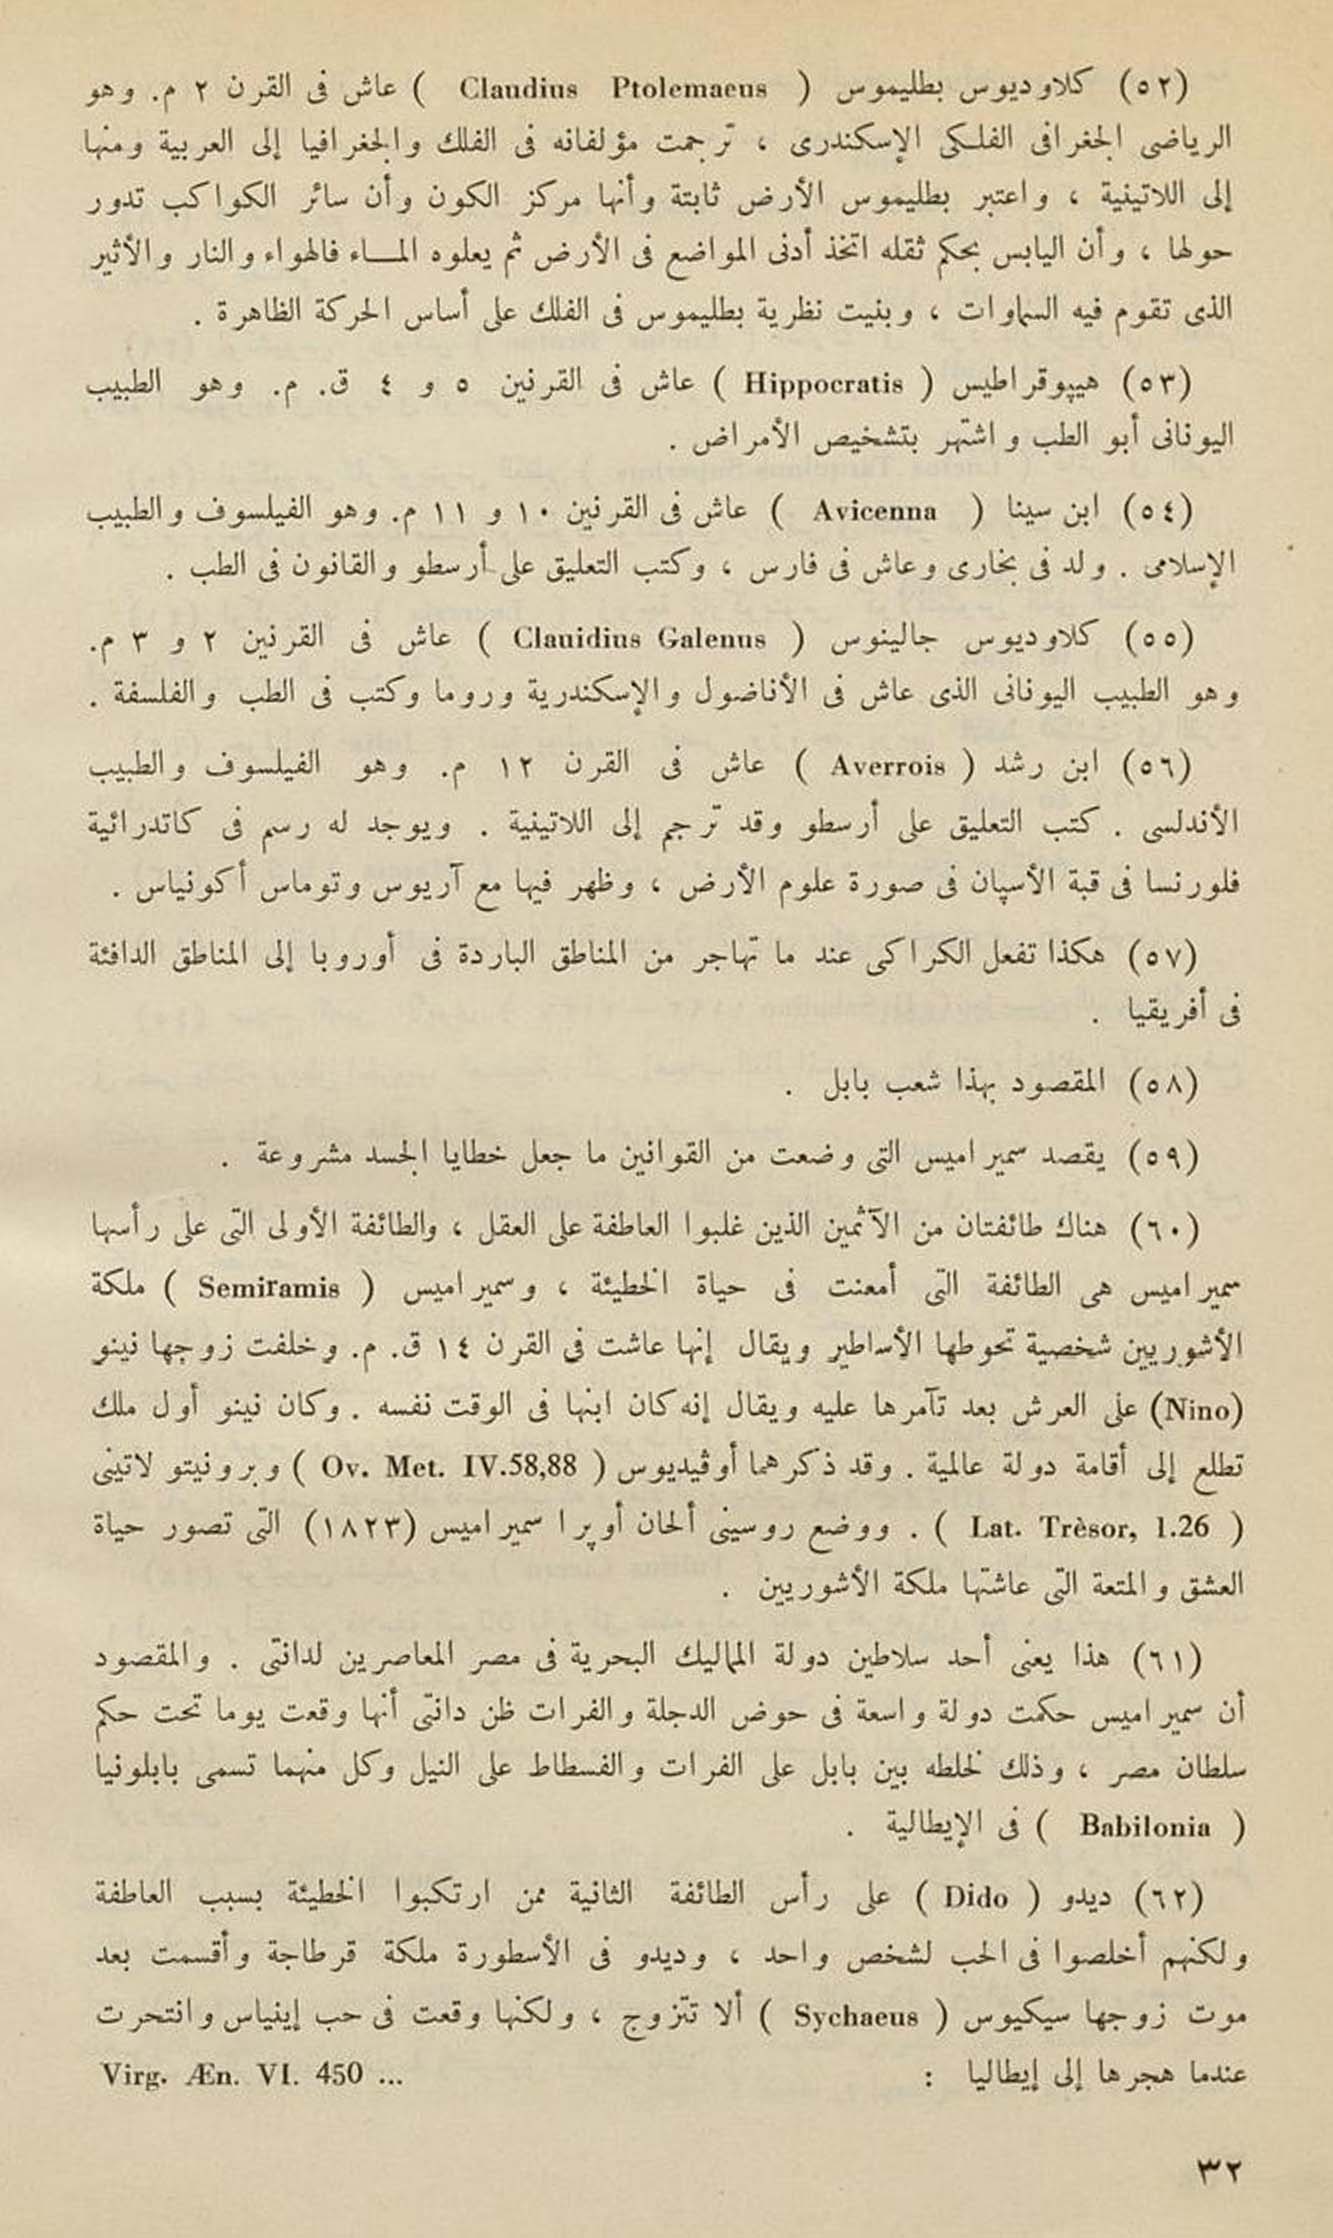 (٥٢) كلاوديوس بطليموس ( Claudius Ptolemaeus ) عاش فى القرن ٢ م. وهو
الرياضى الجغرافى الفلكى الإسكندرى ، ترجمت مؤلفاته فى الفلك والجغرافيا إلى العربية ومنها
إلى اللاتينية ، واعتبر بطليموس الأرض ثابتة وأنها مركز الكون وأن سائر الكواكب تدور
حولها ، وأن اليابس بحكم ثقله اتخذ أدنى المواضع فى الأرض ثم يعلوه المـــاء فالهواء والنار والأثير
الذى تقوم فيه السماوات ، وبنيت نظرية بطليموس فى الفلك على أساس الحركة الظاهرة .
(٥٣) هيپوقراطيس ( Hippocratis ) عاش فى القرنين ٥ و ٤ ق. م. وهو الطبيب
اليونانى أبو الطب واشتهر بتشخيص الأمراض .
(٥٤) ابن سينا ( Avicenna ) عاش فى القرنين ١٠ و ١١ م. وهو الفيلسوف والطبيب
الإسلامى . ولد فى بخارى وعاش فى فارس ، وكتب التعليق على أرسطو والقانون فى الطب .
(٥٥) كلاوديوس جالينوس ( Clauidius Galenus ) عاش فى القرنين ٢ و ٣ م.
وهو الطبيب اليونانى الذى عاش فى الأناضول والإسكندرية وروما وكتب فى الطب والفلسفة .
(٥٦) ابن رشد ( Averrois ) عاش فى القرن ١٢ م. وهو الفيلسوف والطبيب
الأندلسى . كتب التعليق على أرسطو وقد ترجم إلى اللاتينية . ويوجد له رسم فى كاتدرائية
فلورنسا فى قبة الأسپان فى صورة علوم الأرض ، وظهر فيها مع آريوس وتوماس أكونياس .
(٥٧) هكذا تفعل الكراكى عند ما تهاجر من المناطق الباردة فى أوروبا إلى المناطق الدافئة
فى أفريقيا .
(٥٨) المقصود بهذا شعب بابل .
(٥٩) يقصد سميراميس التى وضعت من القوانين ما جعل خطايا الجسد مشروعة .
(٦٠) هناك طائفتان من الآثمين الذين غلبوا العاطفة على العقل ، والطائفة الأولى التى على رأسها
سميراميس هى الطائفة التى أمعنت فى حياة الخطيئة ، وسميراميس ( Semiramis ) ملكة
الأشوريين شخصية تحوطها الأساطير ويقال إنها عاشت فى القرن ١٤ ق. م. وخلفت زوجها نينو
(Nino) على العرش بعد تآمرها عليه ويقال إنه كان ابنها فى الوقت نفسه . وكان نينو أول ملك
تطلع إلى أقامة دولة عالمية . وقد ذكرهما أوڤيديوس ( Ov. Met. IV.58,88 ) وبرونيتو لاتينى
( Lat. Trèsor, 1.26 ) . ووضع روسينى ألحان أوپرا سميراميس (١٨٢٣) التى تصور حياة
العشق والمتعة التى عاشتها ملكة الأشوريين .
(٦١) هذا يعنى أحد سلاطين دولة المماليك البحرية فى مصر المعاصرين لدانتى . والمقصود
أن سميراميس حكمت دولة واسعة فى حوض الدجلة والفرات ظن دانتى أنها وقعت يوما تحت حكم
سلطان مصر ، وذلك لخلطه بين بابل على الفرات والفسطاط على النيل وكل منهما تسمى بابلونيا
( Babilonia ) فى الإيطالية .
(٦٢) ديدو ( Dido ) على رأس الطائفة الثانية ممن ارتكبوا الخطيئة بسبب العاطفة
ولكنهم أخلصوا فى الحب لشخص واحد ، وديدو فى الأسطورة ملكة قرطاجة وأقسمت بعد
موت زوجها سيكيوس ( Sychaeus ) ألا تتزوج ، ولكنها وقعت فى حب إينياس وانتحرت
عندما هجرها إلى إيطاليا : Virg. Æn. VI. 450 ...
٣٢